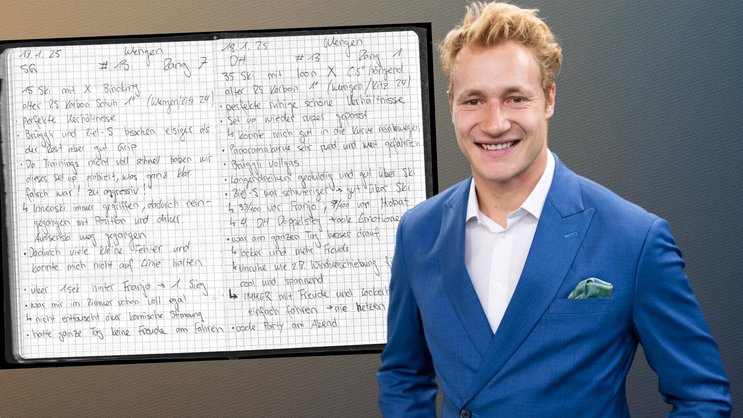 17.1.25 Wengen
SG #13 Rang 7
15 Ski mit X Bindung
alter RS Karbon Schuh 1° (Wengen/Kitz 24)
• perfekte Verhältnisse
• Brüggli und Ziel-S bisschen eisiger als
der Rest aber gut Grip
• Da Trainings nicht voll schnell haben wir
dieses Set up probiert, was ganz klar
falsch war! zu aggressiv!
↳ Innenski immer gegriffen, dadurch rein-
gegangen mit Position und daher
Aussenski weg gegangen
• Dadurch viele kleine Fehler und
konnte mich nicht auf Linie halten
• über 1sek hinter Franjo → 1. Sieg
• was mir im Zimmer schon voll egal
↳ nicht enttäuscht aber komische Stimmung
• hatte ganze Tag keine Freude am Fahren
18.1.25 Wengen
DH #13 Rang 1
35 Ski mit X
alter RS Karbon 1° (Wengen/Kitz 24)
• perfekte ruhige schöne Verhältnisse
• Set up wieder super gepasst
↳ konnte mich gut in die Kurve reinbewegen
• Panoramakurve sehr rund und weit gefahren
• Brüggli vollgas
• Langentrejen geduldig und gut über Ski
• Ziel-S war schwieriger → gut über Ski
↳ 37/100 vor Franjo,
↳ 4. DH Doppelsieg → coole Emotionen
• was am ganzen Tag besser drauf
↳ locker und mehr Freude
↳ Unruhe wie z.B. Windverschiebung
cool und spannend
↳ IMMER mit Freude und Lockerheit
einfach fahren → nie hetzen
• coole Party am Abend